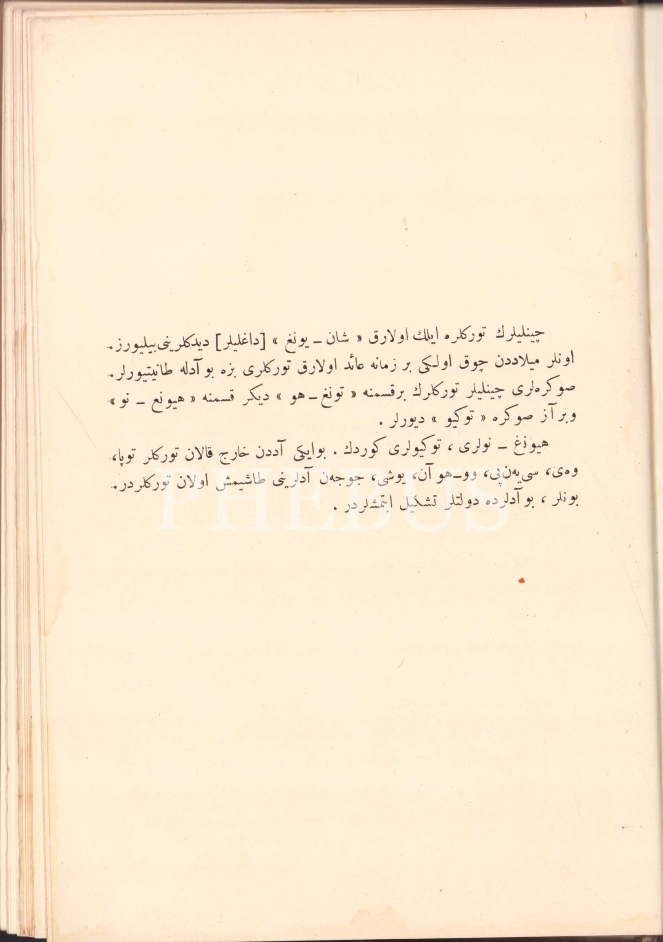 چینلیلرك تورکلره ایلك اولارق « شان ـ یونغ » [داغلیلر] دیدکلرینی بیلیورز.
اونلر میلاددن چوق اولکی بر زمانه عائد اولارق تورکلری بزه بو آدله طانیتیورلر.
صوکره‌لری چینلیلر تورکلرك برقسمنه « تونغ ـ هو » دیکر قسمنه « هیونغ ـ نو »
وبر آز صوکره « توکیو » دیورلر .
هیونغ ـ نولری ، توکیولری کوردك . بوایکی آددن خارج قالان تورکلر توپا،
وه‌ی، سی‌یه‌ن‌پی، وو-هو آن، یوشی، جوجه‌ن آدلرینی طاشیمش اولان تورکلردر.
بونلر ، بو آدلرده دولتلر تشکیل ایتمشلردر .
PHEBUS